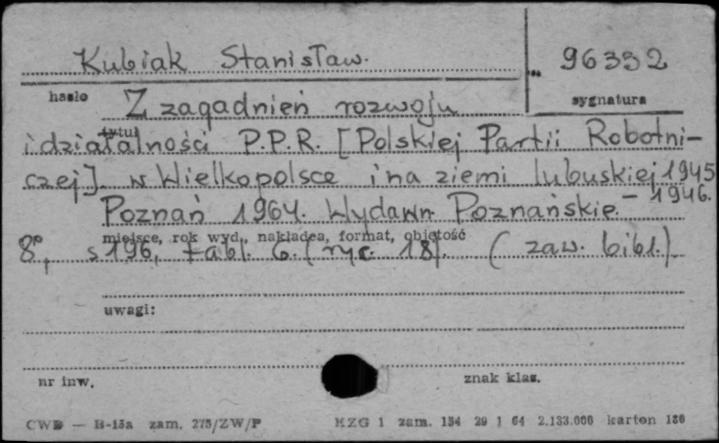 Kubiak Stanisław.
96332
hasło
sygnatura
Z zagadnień rozwoju
tytuł
i działalności P.P.R. [Polskiej Partii Robotni-
czej] w Wielkopolsce i na ziemi lubuskiej 1945
- 1946.
Poznań 1964. Wydawn. Poznańskie.
miejsce, rok wyd., nakładca, format, objętość
8°, s 196, tabl. 6. (ryc. 18). (zaw. bibl.).
uwagi:
nr inw.
znak klas.
CWD — B-15a zam. 275/ZW/P
KZG 1 zam. 154 29 1 64 2.133.000 karton 180